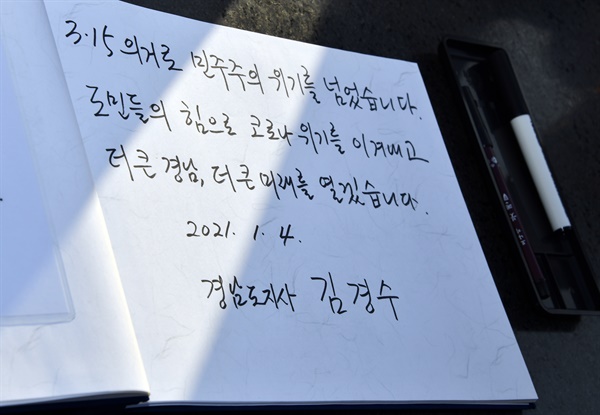 3·15 의거로 민주주의 위기를 넘었습니다.
도민들의 힘으로 코로나 위기를 이겨내고
더 큰 경남, 더 큰 미래를 열겠습니다.
2021. 1. 4.
경남도지사 김경수